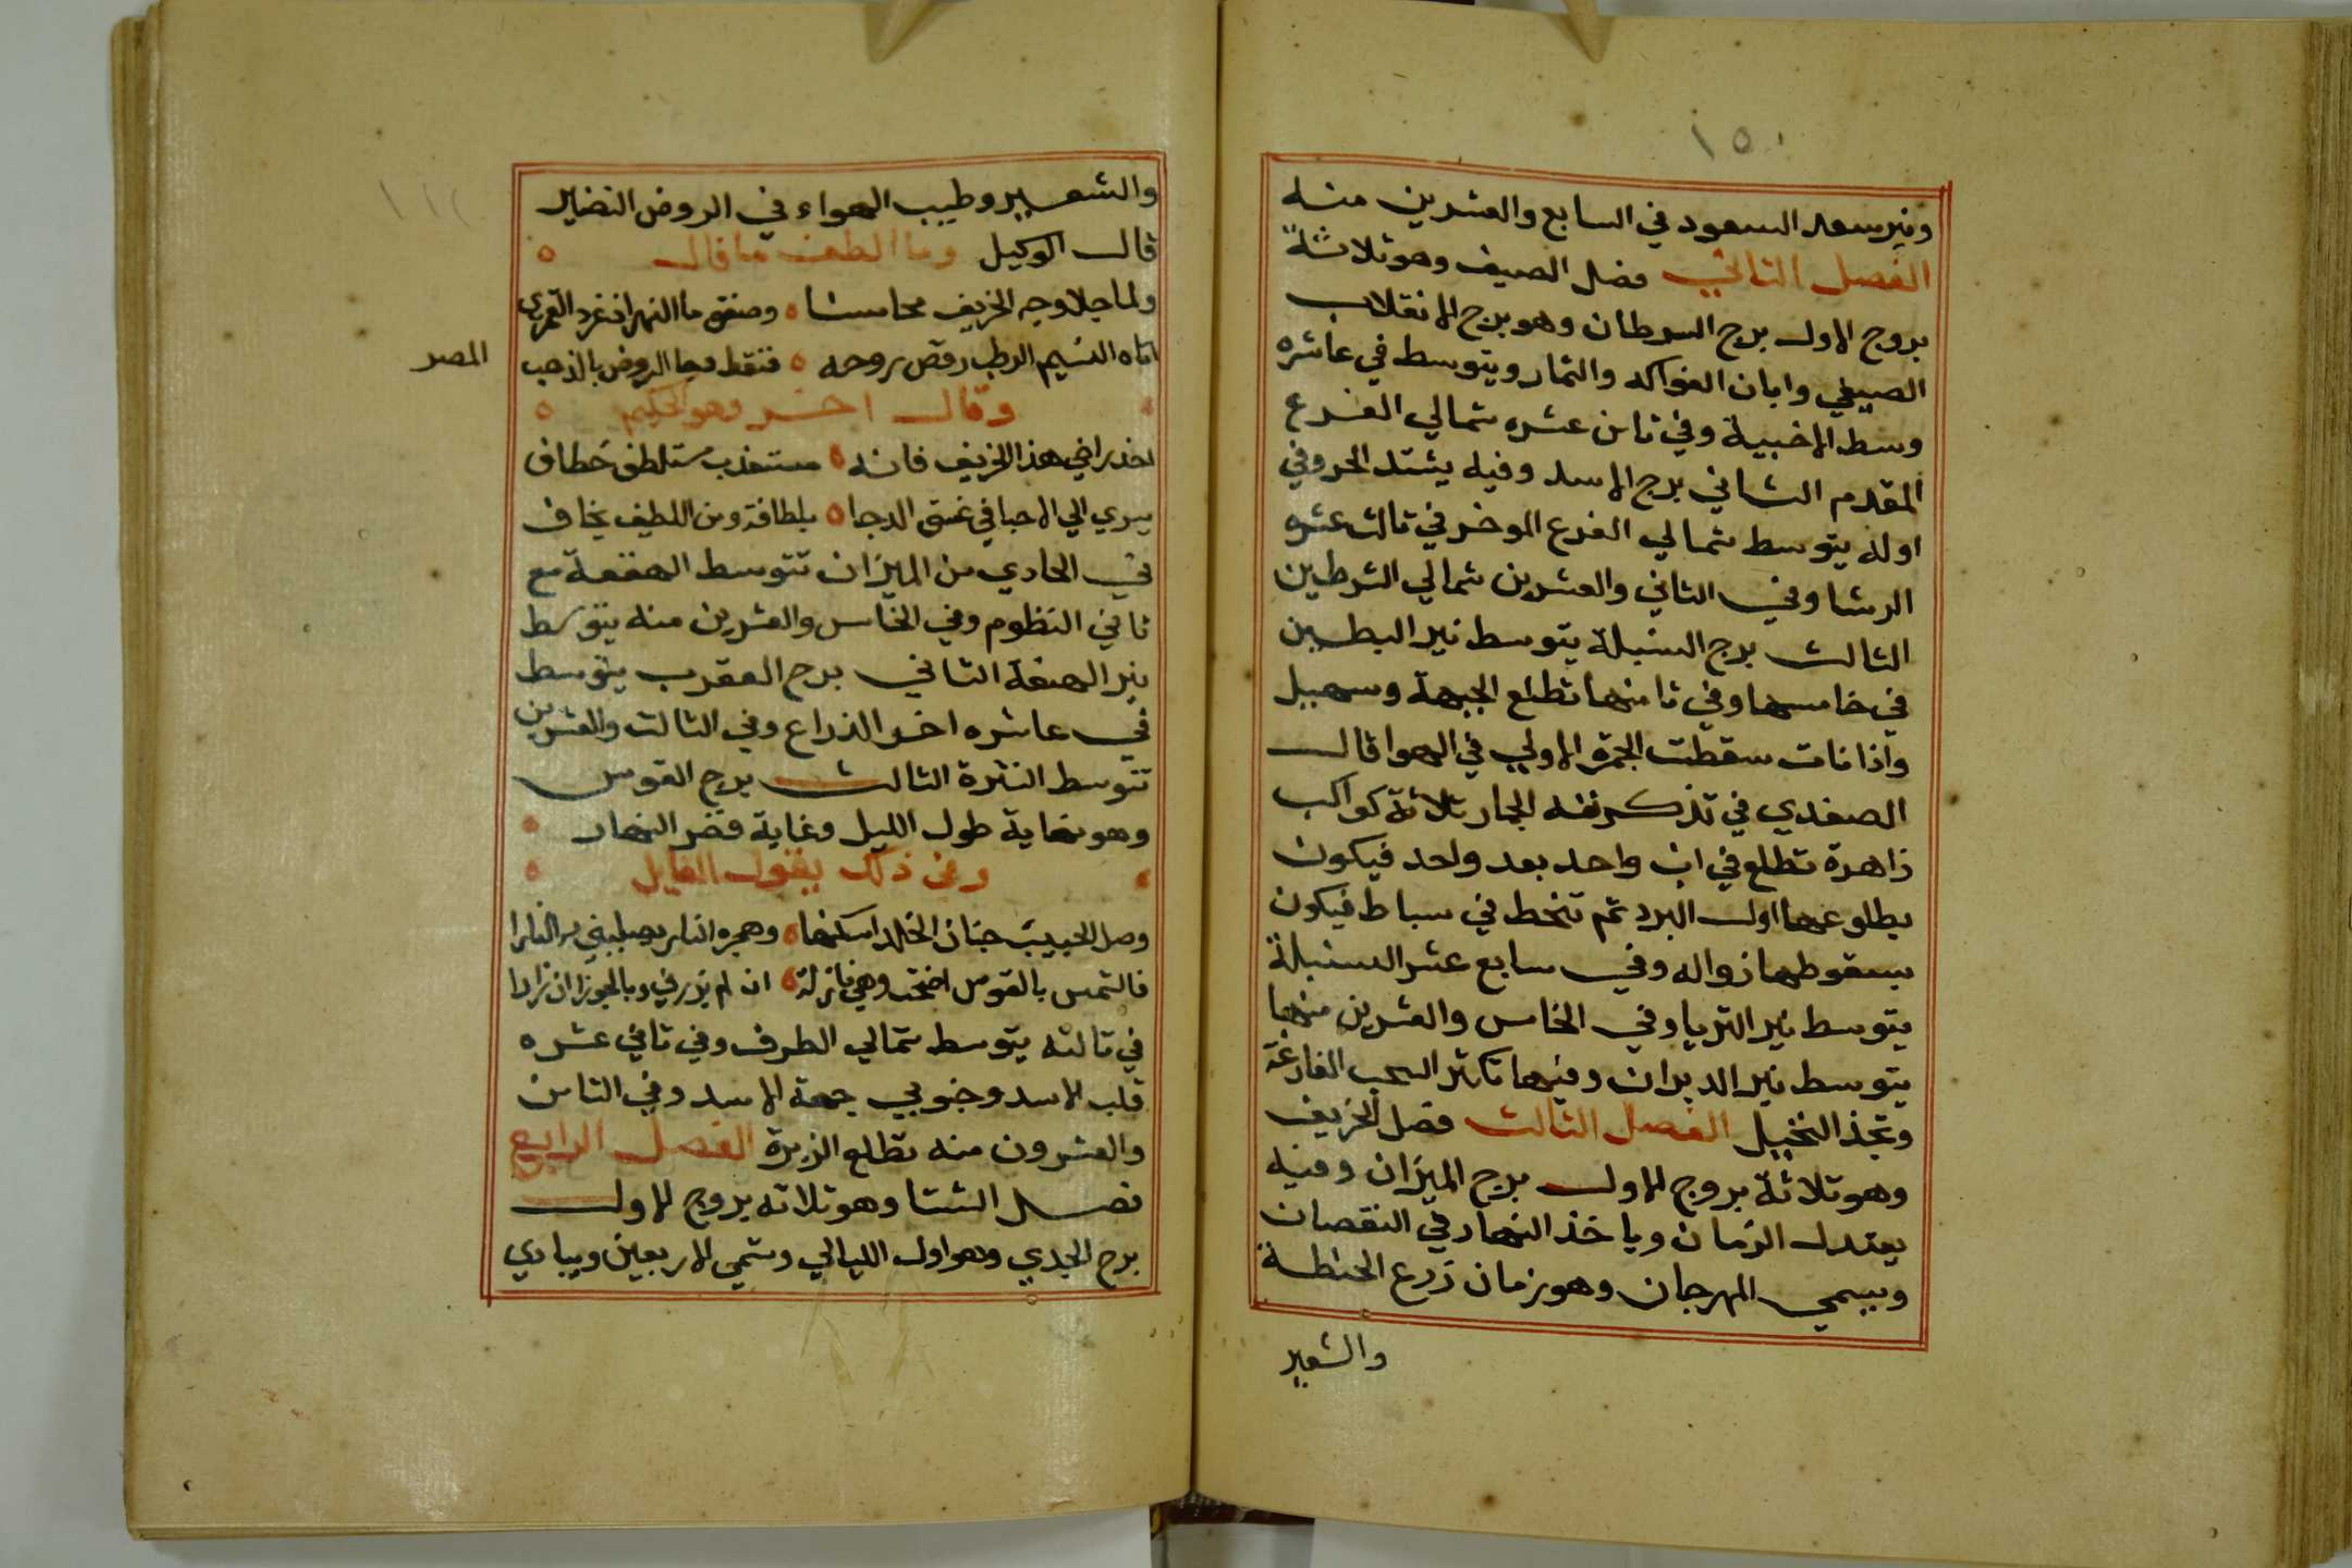 ١٥٠
ونير سعد السعود في السابع والعشرين منه
الفصل الثاني فصل الصيف وهو ثلاثة
بروج الاول برج السرطان وهو برج الانقلاب
الصيفي وابان الفواكه والثمار ويتوسط في عاشره
وسط الاخبية وفي ثامن عشره شمالي الفرع
المقدم الثاني برج الاسد وفيه يشتد الحر وفي
اوله يتوسط شمالي الفرع الموخر في ثالث عشره
الرشا وفي الثاني والعشرين شمالي الشرطين
الثالث برج السنبلة يتوسط نير البطين
في خامسها وفي ثامنها تطلع الجبهة وسهيل
واذا فات سقطت الجمرة الاولي في الهوا قال
الصفدي في تذكرته الجمار ثلاثة كواكب
زاهرة تطلع في اب واحد بعد واحد فيكون
بطلوعها اول البرد ثم تنحط في سباط فيكون
بسقوطها زواله وفي سابع عشر السنبلة
يتوسط نير الثريا وفي الخامس والعشرين منها
يتوسط نير الدبران وفيها تكثر السحب الفارغة
وتجذ النخيل الفصل الثالث فصل الخريف
وهو ثلاثة بروج الاول برج الميزان وفيه
يعتدل الزمان وياخذ النهار في النقصان
ويسمي المهرجان وهو زمان زرع الحنطة
والشعير
والشعير وطيب الهواء في الروض النضير
قال الوكيل وما الطف ما قال
ولما جلا وجه الخريف محاسنا وصفق ما النهر اذ غرد القمري
اتاه النسيم الرطب رقص روحه فنقط وجه الروض بالذهب
المصر
وقال اخر وهو الحكيم
خذ في هذا الخريف فانه مستعذب مستلطف خطاف
يسري الي الاحبا في غسق الدجا بلطافة ومن اللطيف يخاف
في الحادي من الميزان تتوسط الهقعة مع
ثاني النظوم وفي الخامس والعشرين منه يتوسط
نير الهنعة الثاني برج العقرب يتوسط
في عاشره اخر الذراع وفي الثالث والعشرين
تتوسط النثرة الثالث برج القوس
وهو نهاية طول الليل وغاية قصر النهار
وفي ذلك يقول القايل
وصل الحبيب جنان الخلد اسكنها وهجره النار يصليني به النارا
فالشمس بالقوس اضحت وهي نازلة ان لم يزرني وبالجوزا ان زارا
في ثالثه يتوسط شمالي الطرف وفي ثاني عشره
قلب الاسد وجنوبي جبهة الاسد وفي الثامن
والعشرون منه تطلع الزبرة الفصل الرابع
فصل الشتا وهو ثلاثه بروج الاول
برج الجدي وهو اول الليالي وتسمي الاربعين ويبادي